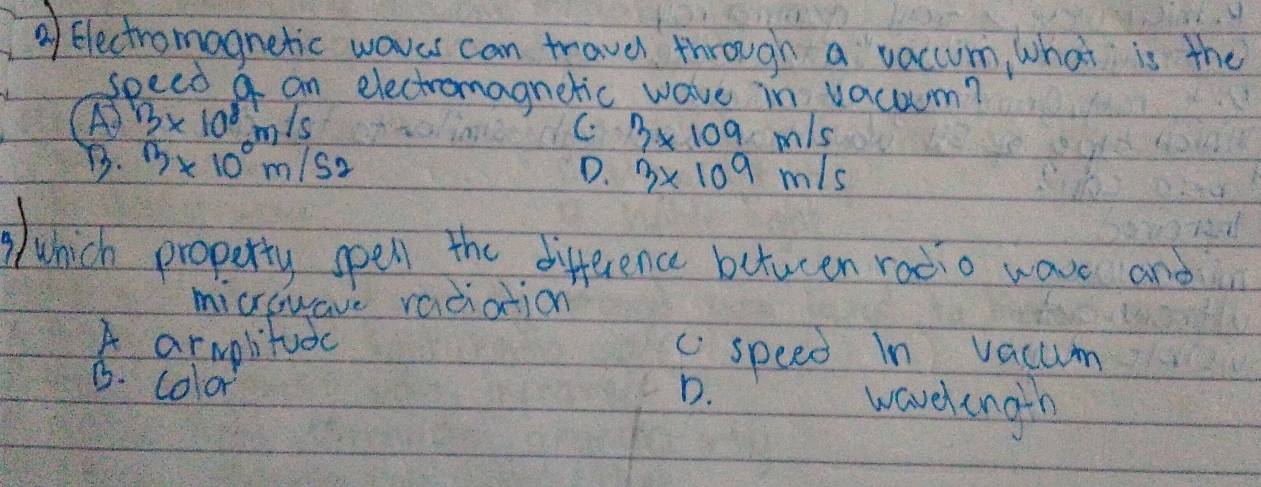 2) Electromagnetic waves can travel through a vaccum, what is the
speed of an electromagnetic wave in vacuum?
A) 3x 10⁸ m/s C. 3x 109 m/s
B. 3x 10⁸ m/s2 D. 3x 109 m/s
3) which property spell the difference between radio wave and
microwave radiation
A amplitude C speed in vaccum
B. color D. wavelength